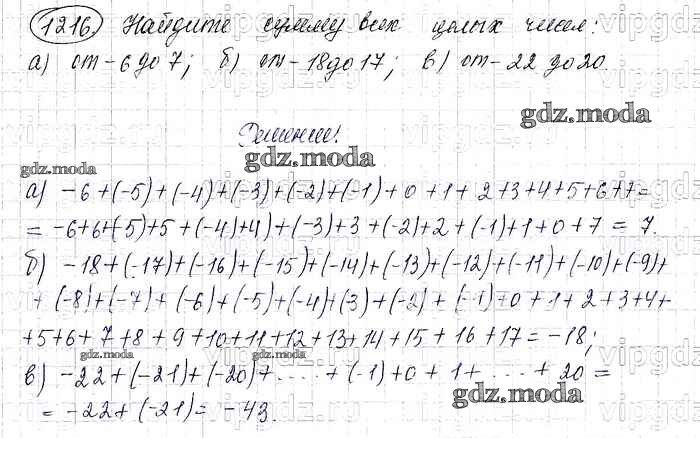 1216. Найдите сумму всех целых чисел:
а) от -6 до 7; б) от -18 до 17; в) от -22 до 20.
gdz.moda
Решение:
gdz.moda
gdz.moda
а) -6+(-5)+(-4)+(-3)+(-2)+(-1)+0+1+2+3+4+5+6+7=
= -6+6+(-5)+5+(-4)+4)+(-3)+3+(-2)+2+(-1)+1+0+7 = 7.
б) -18+(-17)+(-16)+(-15)+(-14)+(-13)+(-12)+(-11)+(-10)+(-9)+
+(-8)+(-7)+(-6)+(-5)+(-4)+(3)+(-2)+(-1)+0+1+2+3+4+
+5+6+7+8+9+10+11+12+13+14+15+16+17=-18;
gdz.moda gdz.moda
в) -22+(-21)+(-20)+.....+(-1)+0+1+...+20=
gdz.moda
= -22+(-21)= -43.